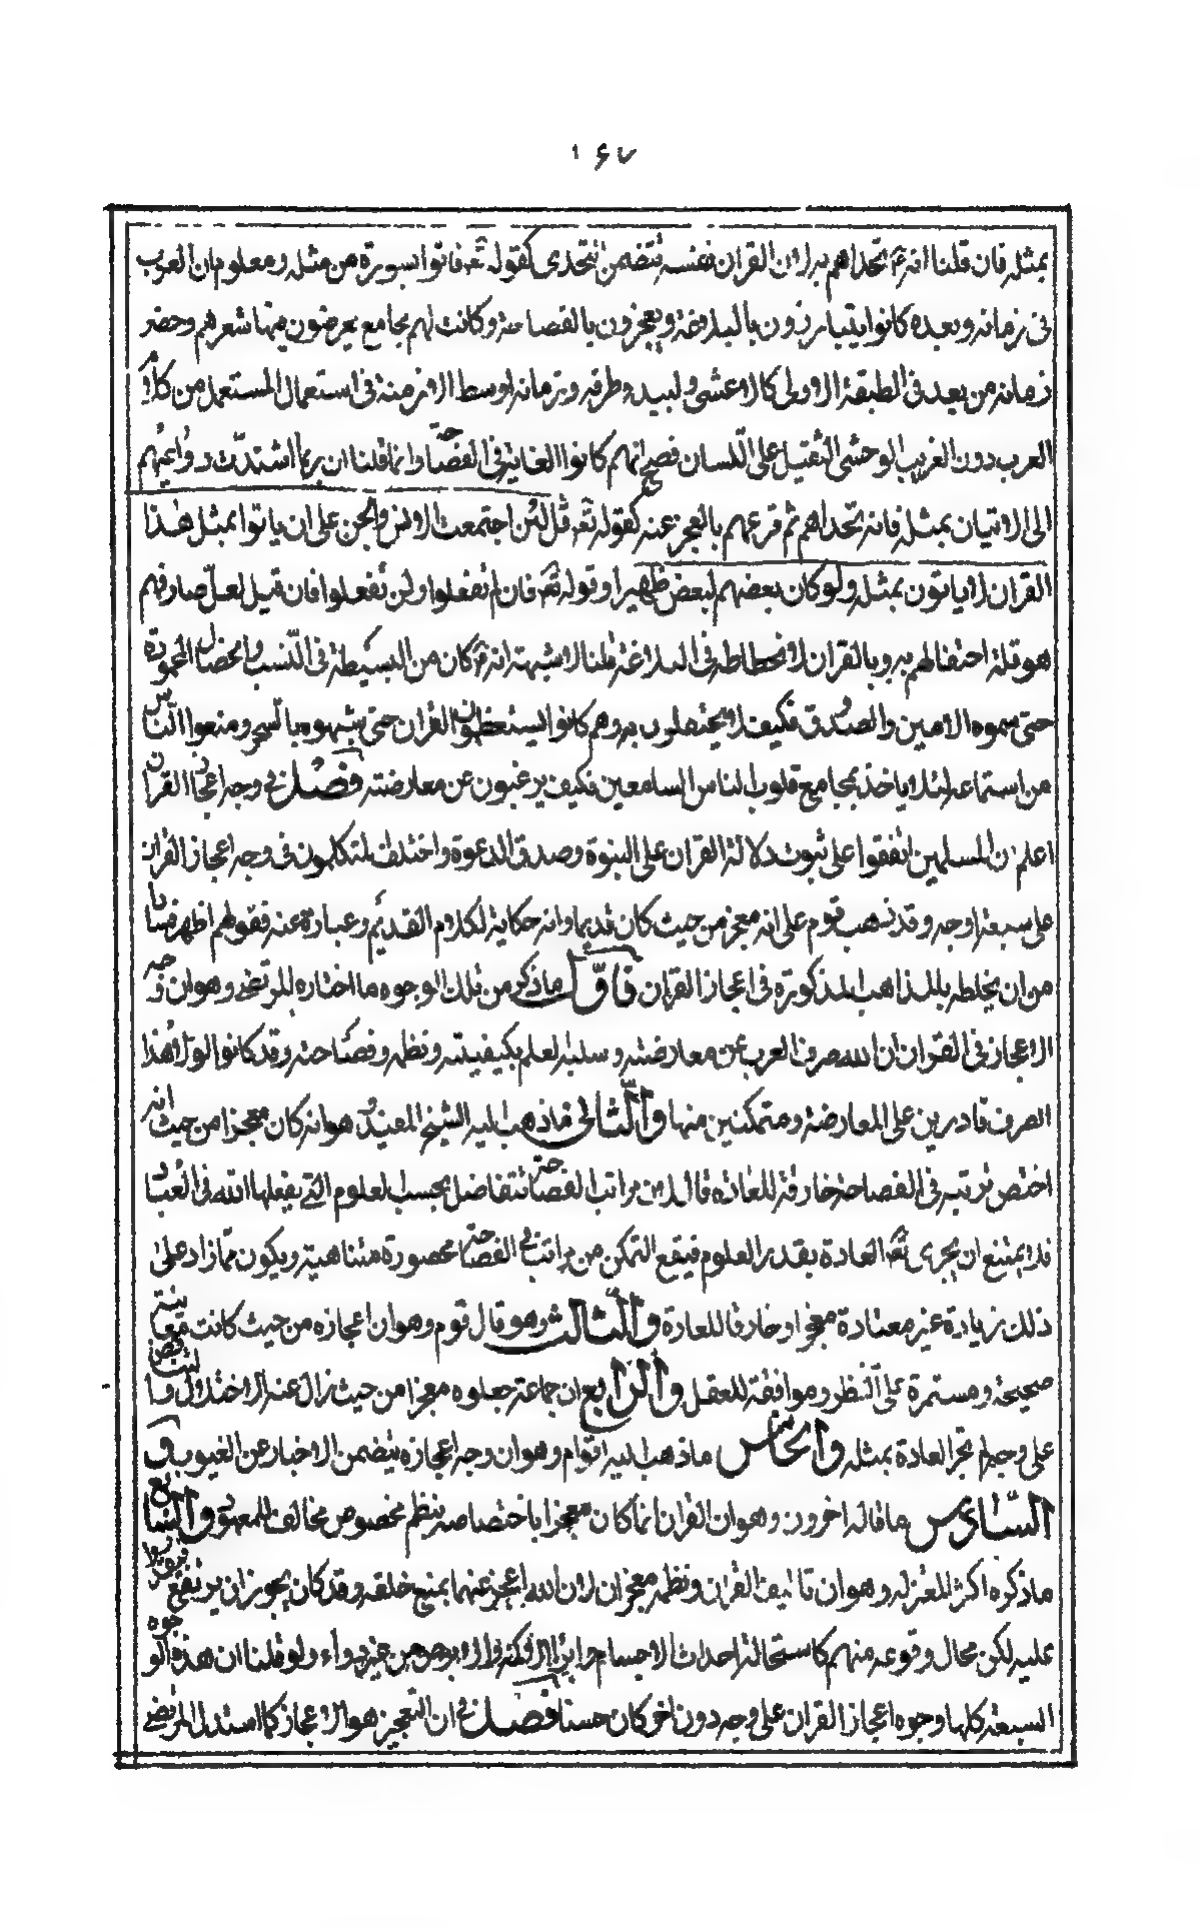 ١٦٧
بمثله فان قلنا انه ۴ تحداهم به لان القران نفسه يتضمن التحدى كقوله تعٓ فاتوا بسورة من مثله ومعلوم ان العرب
فى زمانه وبعده كانوا يتبارزون بالبلاغة ويفخرون بالفصاحة وكانت لهم مجامع يعرضون فيها شعرهم وحضر
زمانه من يعد فى الطبقة الاولى كالاعشى ولبيد وطرفه وزمانه اوسط الازمنة فى استعمال المستعمل من كلام
العرب دون الغريب الوحشى الثقيل على اللسان فصح انهم كانوا الغاية فى الفصاحة وانما قلنا ان بها اشتدت دواعيهم
الى الاتيان بمثله فانه تحداهم ثم قرعهم بالعجز عنه كقوله تعٓ قل لئن اجتمعت الانس والجن على ان ياتوا بمثل هذا
القران لا ياتون بمثله ولو كان بعضهم لبعض ظهيرا وقوله تعٓ فان لم تفعلوا ولن تفعلوا فان قيل لعل صارفهم
هو قلة احتفالهم به وبالقران لانحطاطه فى البلاغة قلنا لا شبهة انه ۴ كان من البسيطة فى النسب والخصال المحمودة
حتى سموه الامين والصدوق فكيف لا يحتفلون به وهم كانوا يستعظمون القران حتى شهروه بالسحر ومنعوا الناس
من استماعه لئلا ياخذ بمجامع قلوب الناس السامعين فكيف يرغبون عن معارضته فصل فى وجه اعجاز القران
اعلم ان المسلمين اتفقوا على ثبوت دلالة القران على النبوة وصدق الدعوة واختلف المتكلمون فى وجه اعجاز القران
على سبعة اوجه وقد ذهب قوم على انه معجز من حيث كان قديما وانه حكاية للكلام القديم وعبارة عنه فقولهم اظهر فسادا
من ان يخلط بالمذاهب المذكورة فى اعجاز القران فاول ما ذكر من تلك الوجوه ما اختاره المرتضى وهو ان وجه
الاعجاز فى القران ان الله صرف العرب عن معارضته وسلبهم العلم بكيفيته ونظمه وفصاحته وقد كانوا لولا هذا
الصرف قادرين على المعارضة ومتمكنين منها والثانى ما ذهب اليه الشيخ المفيد ره هو انه كان معجزا من حيث انه
اختص برتبة فى الفصاحة خارقة للعادة قال لان مراتب الفصاحة تتفاضل بحسب العلوم التى يفعلها الله فى العباد
فلا يمتنع ان يجرى تعٓ العادة بقدر العلوم فيقع التمكن من مراتب فى الفصاحة محصورة متناهية ويكون ما زاد على
ذلك زيادة غير معتادة معجزا وخارقا للعادة والثالث وهو قال قوم وهو ان اعجازه من حيث كانت معانيه
صحيحة ومستمرة على النظر وموافقة للعقل والرابع ان جماعة جعلوه معجزا من حيث زال عنه الاختلال والتناقض
على وجه لم تجر العادة بمثله والخامس ما ذهب اليه اقوام وهو ان وجه اعجازه يتضمن الاخبار عن الغيوب و
السادس ما قاله اخرون وهو ان القران انما كان معجزا باختصاصه بنظم مخصوص مخالف للمعهود والسابع
ما ذكره اكثر المعتزلة وهو ان تاليف القران ونظمه معجزان لان الله اعجز عنهما بمنع خلقه وقد كان يجوز ان يرتفع فيقدروا
عليه لكن محال وقوعه منهم كاستحالة احداث الاجسام وابراء الاكمه والابرص من غير دواء ولو قلنا ان هذه الوجوه
السبعة كلها وجوه اعجاز القران على وجه دون اخر كان حسنا فصل فى ان التعجيز هو الاعجاز كما استدل المرتضى